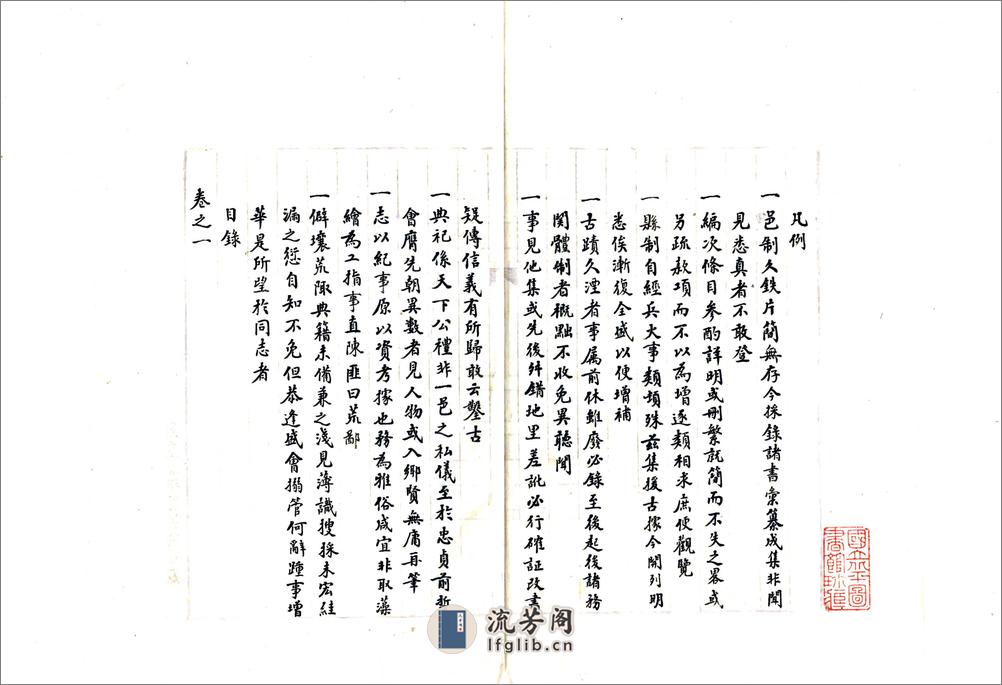 凡例
一邑制久鉄片簡無存今採錄諸書彙纂成集非聞
見悉真者不敢登
一編次條目參酌詳明或刪繁就簡而不失之畧或
另疏款項而不以為增逐類相求庶便觀覽
一縣制自經兵火事類頓殊茲集援古據今開列明
悉俟漸復全盛以便增補
一古蹟久湮者事属前休雖廢必錄至後起後諸務
関體制者概黜不收免異聽聞
一事見他集或先後舛錯地里差訛必行確証改書
疑傳信義有所歸敢云鑿古
一典祀係天下公禮非一邑之私儀至於忠貞前哲
會膺先朝異數者見人物或入鄉賢無庸再筆
一志以紀事原以資考據也務為雅俗咸宜非取藻
繪為工指事直陳匪曰荒鄙
一僻壤荒陬典籍未備兼之淺見薄識搜採未宏絓
漏之愆自知不免但恭逢盛會搦管何辭踵事增
華是所望於同志者
目錄
卷之一
國立北平圖
書館珍藏
流芳阁
lfglib.cn